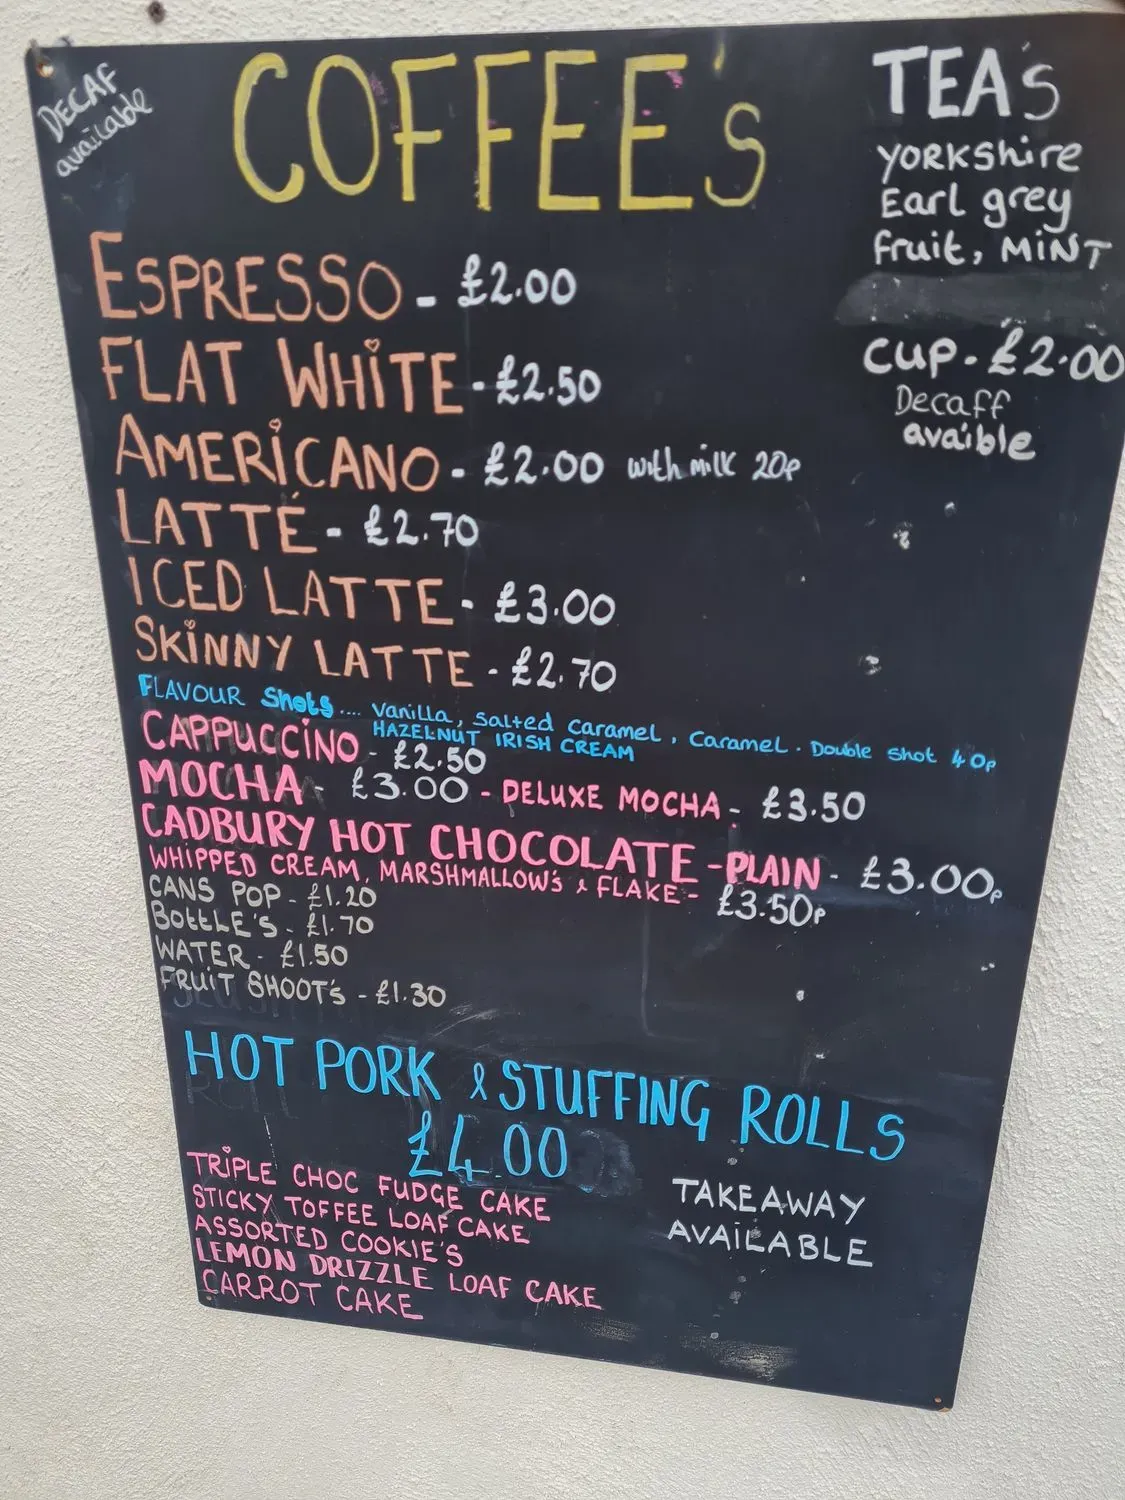 DECAF
available
COFFEE's
ESPRESSO - £2.00
FLAT WHITE - £2.50
AMERICANO - £2.00 with milk 20p
LATTÉ - £2.70
ICED LATTE - £3.00
SKINNY LATTE - £2.70
FLAVOUR Shots.... Vanilla, Salted Caramel, Caramel. Double Shot 40p
HAZELNUT IRISH CREAM
CAPPUCCINO - £2.50
MOCHA - £3.00 - DELUXE MOCHA - £3.50
CADBURY HOT CHOCOLATE - PLAIN - £3.00p
WHIPPED CREAM, MARSHMALLOW's & FLAKE - £3.50p
CANS POP - £1.20
BOttLE'S - £1.70
WATER - £1.50
FRUIT SHOOT's - £1.30
TEA's
YORKShire
Earl grey
fruit, MINT
CUP - £2.00
Decaff
avaible
HOT PORK & STUFFING ROLLS
£4.00
TRIPLE CHOC FUDGE CAKE
STICKY TOFFEE LOAF CAKE
ASSORTED COOKIE'S
LEMON DRIZZLE LOAF CAKE
CARROT CAKE
TAKEAWAY
AVAILABLE